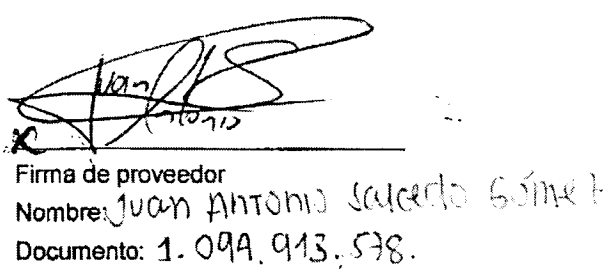 Juan
Antonio
x
Firma de proveedor
Nombre: Juan Antonio Salcedo Gómez
Documento: 1.094.913.578.